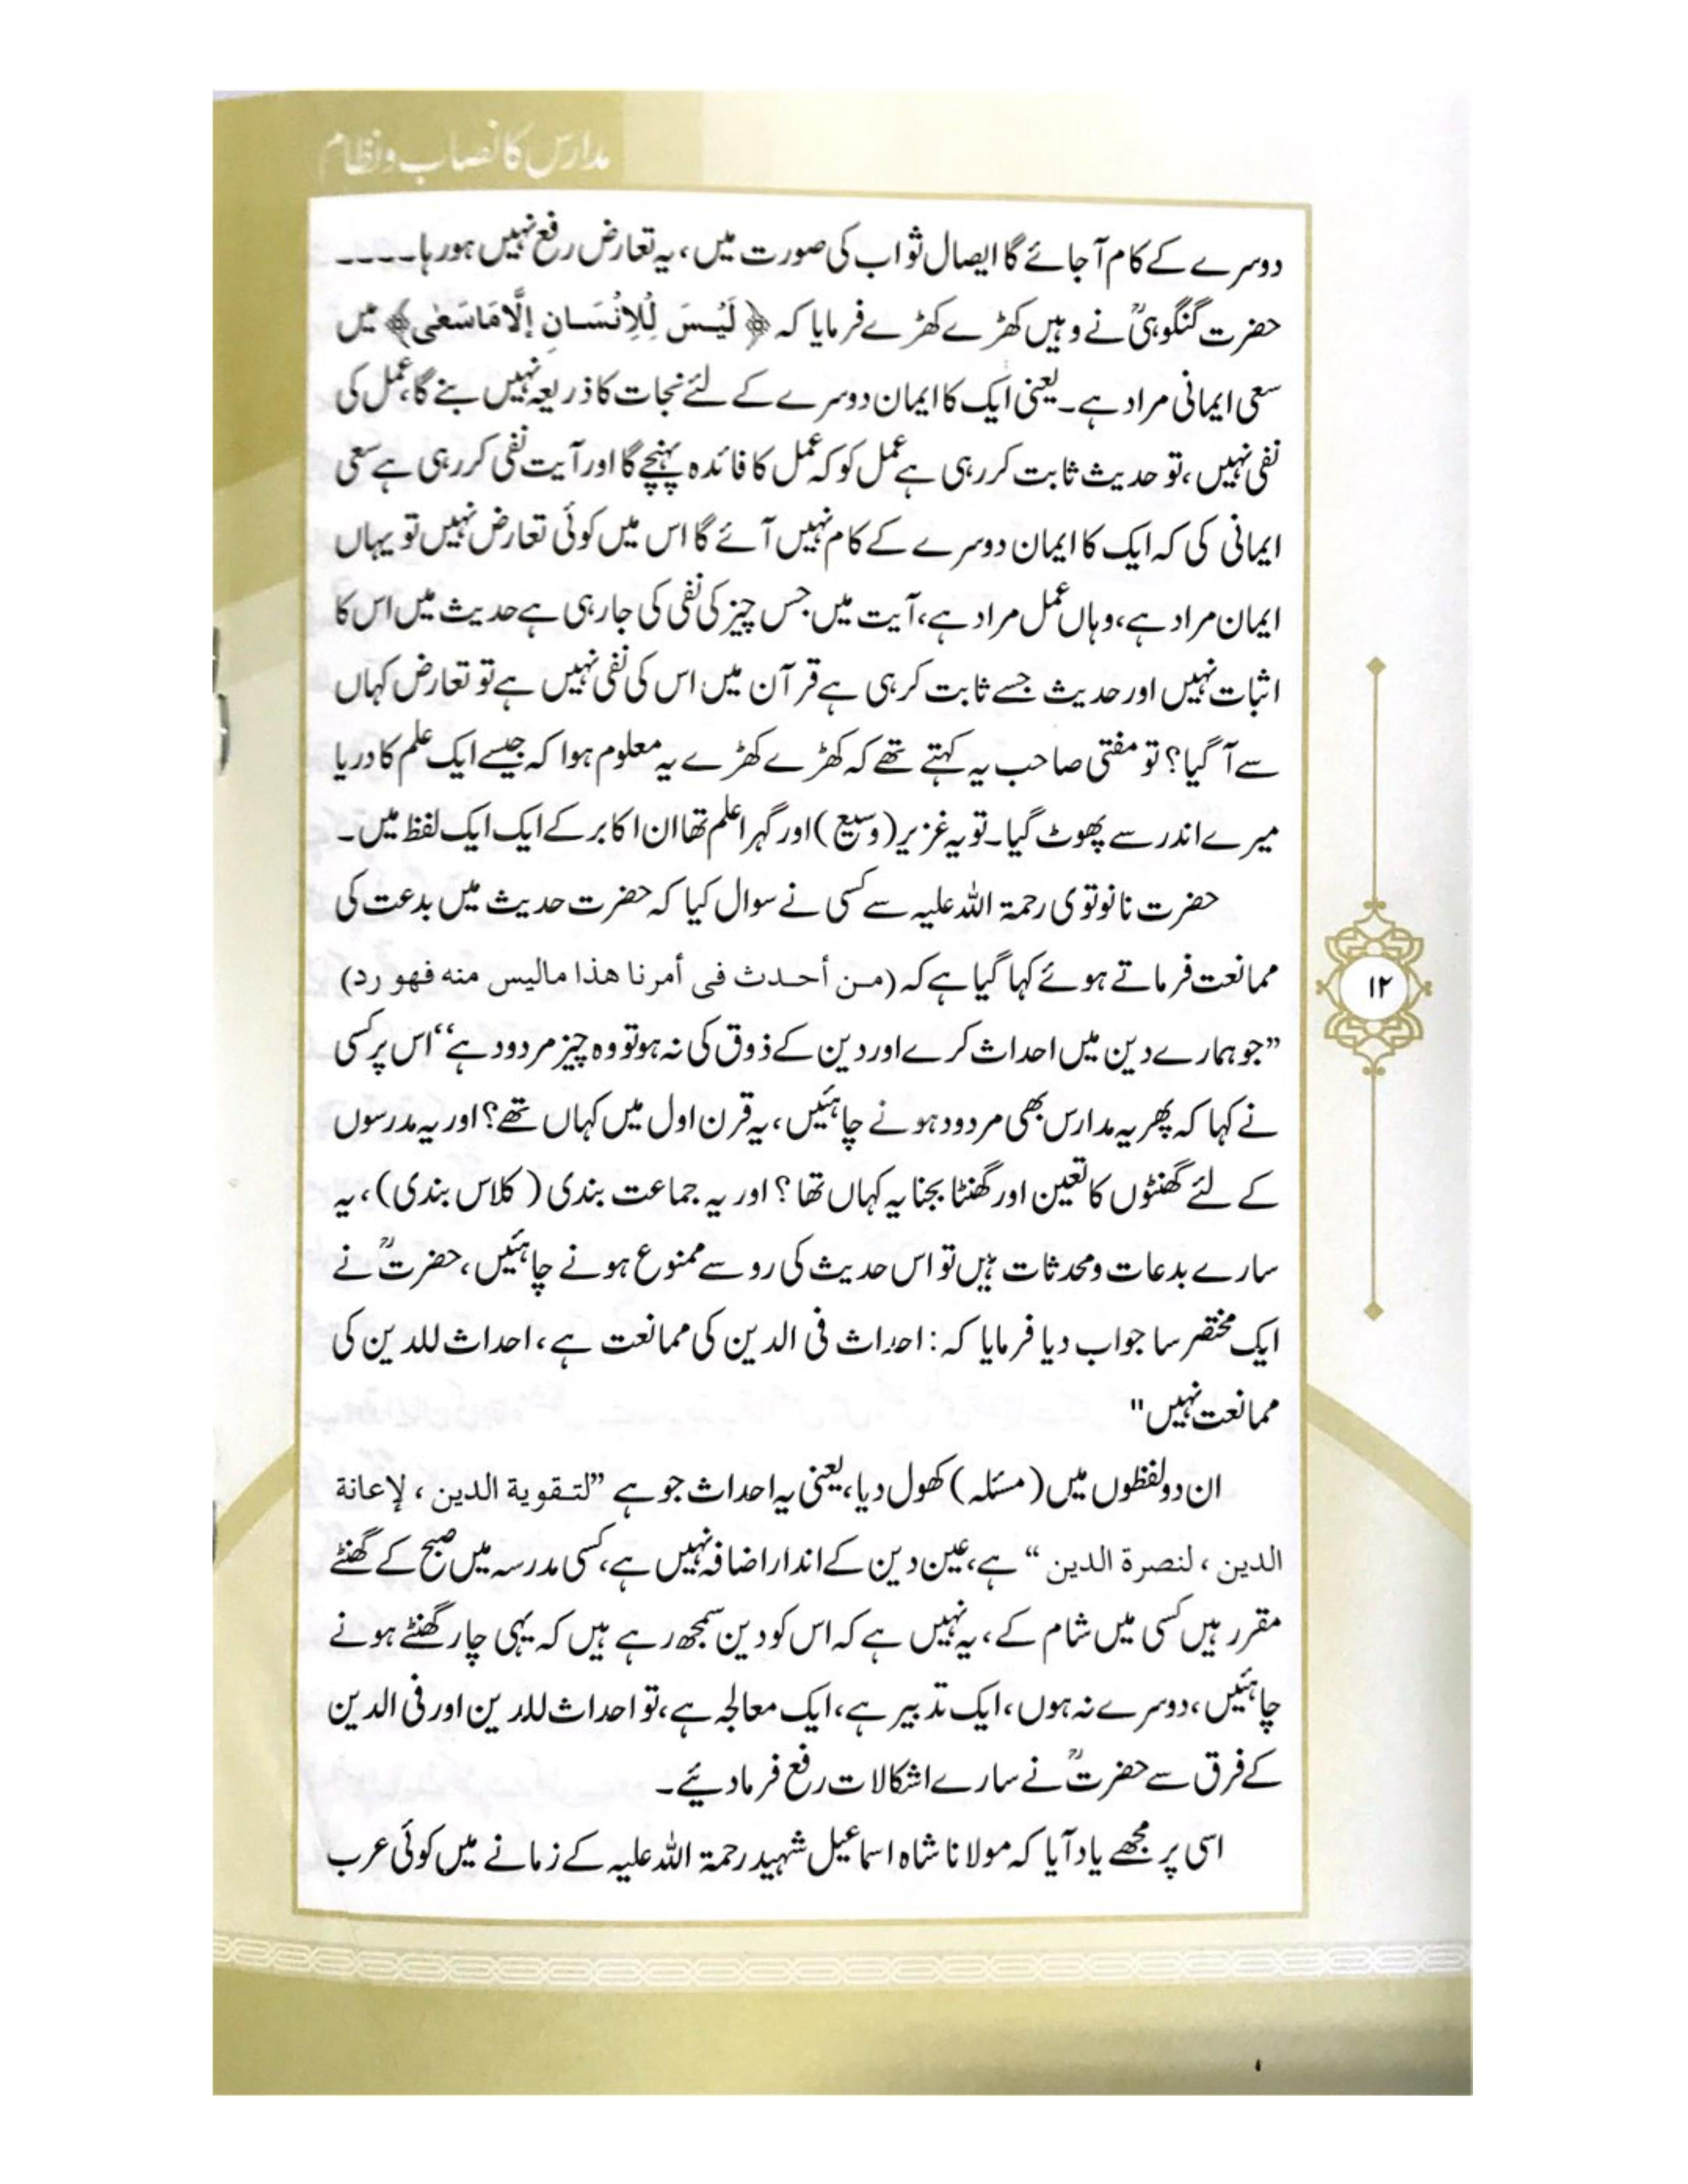 مدارس کا نصاب ونظام
دوسرے کے کام آ جائے گا ایصال ثواب کی صورت میں، یہ تعارض رفع نہیں ہو رہا۔۔۔۔
حضرت گنگوہیؒ نے وہیں کھڑے کھڑے فرمایا کہ ﴿ لَيْسَ لِلْإِنْسَانِ إِلَّا مَا سَعٰى﴾ میں
سعی ایمانی مراد ہے۔ یعنی ایک کا ایمان دوسرے کے لئے نجات کا ذریعہ نہیں بنے گا، عمل کی
نفی نہیں، تو حدیث ثابت کر رہی ہے عمل کو کہ عمل کا فائدہ پہنچے گا اور آیت نفی کر رہی ہے سعی
ایمانی کی کہ ایک کا ایمان دوسرے کے کام نہیں آئے گا اس میں کوئی تعارض نہیں تو یہاں
ایمان مراد ہے، وہاں عمل مراد ہے، آیت میں جس چیز کی نفی کی جا رہی ہے حدیث میں اس کا
اثبات نہیں اور حدیث جسے ثابت کر ہی ہے قرآن میں اس کی نفی نہیں ہے تو تعارض کہاں
سے آ گیا؟ تو مفتی صاحب یہ کہتے تھے کہ کھڑے کھڑے یہ معلوم ہوا کہ جیسے ایک علم کا دریا
میرے اندر سے پھوٹ گیا۔ تو یہ غزیر (وسیع) اور گہرا علم تھا ان اکابر کے ایک ایک لفظ میں۔
حضرت نانوتوی رحمۃ اللہ علیہ سے کسی نے سوال کیا کہ حضرت حدیث میں بدعت کی
ممانعت فرماتے ہوئے کہا گیا ہے کہ (من أحدث فی أمرنا هذا مالیس منه فهو رد)
”جو ہمارے دین میں احداث کرے اور دین کے ذوق کی نہ ہو تو وہ چیز مردود ہے“ اس پر کسی
نے کہا کہ پھر یہ مدارس بھی مردود ہونے چاہئیں، یہ قرن اول میں کہاں تھے؟ اور یہ مدرسوں
کے لئے گھنٹوں کا تعین اور گھنٹا بجنا یہ کہاں تھا؟ اور یہ جماعت بندی (کلاس بندی)، یہ
سارے بدعات و محدثات ہیں تو اس حدیث کی رو سے ممنوع ہونے چاہئیں، حضرتؒ نے
ایک مختصر سا جواب دیا فرمایا کہ: احداث فی الدین کی ممانعت ہے، احداث للدین کی
ممانعت نہیں"
ان دو لفظوں میں (مسئلہ) کھول دیا، یعنی یہ احداث جو ہے ”لتقویة الدین، لإعانة
الدین، لنصرة الدین“ ہے، عین دین کے اندار اضافہ نہیں ہے، کسی مدرسہ میں صبح کے گھنٹے
مقرر ہیں کسی میں شام کے، یہ نہیں ہے کہ اس کو دین سمجھ رہے ہیں کہ یہی چار گھنٹے ہونے
چاہئیں، دوسرے نہ ہوں، ایک تدبیر ہے، ایک معالجہ ہے، تو احداث للدین اور فی الدین
کے فرق سے حضرتؒ نے سارے اشکالات رفع فرما دیئے۔
اسی پر مجھے یاد آیا کہ مولانا شاہ اسماعیل شہید رحمۃ اللہ علیہ کے زمانے میں کوئی عرب
۱۲